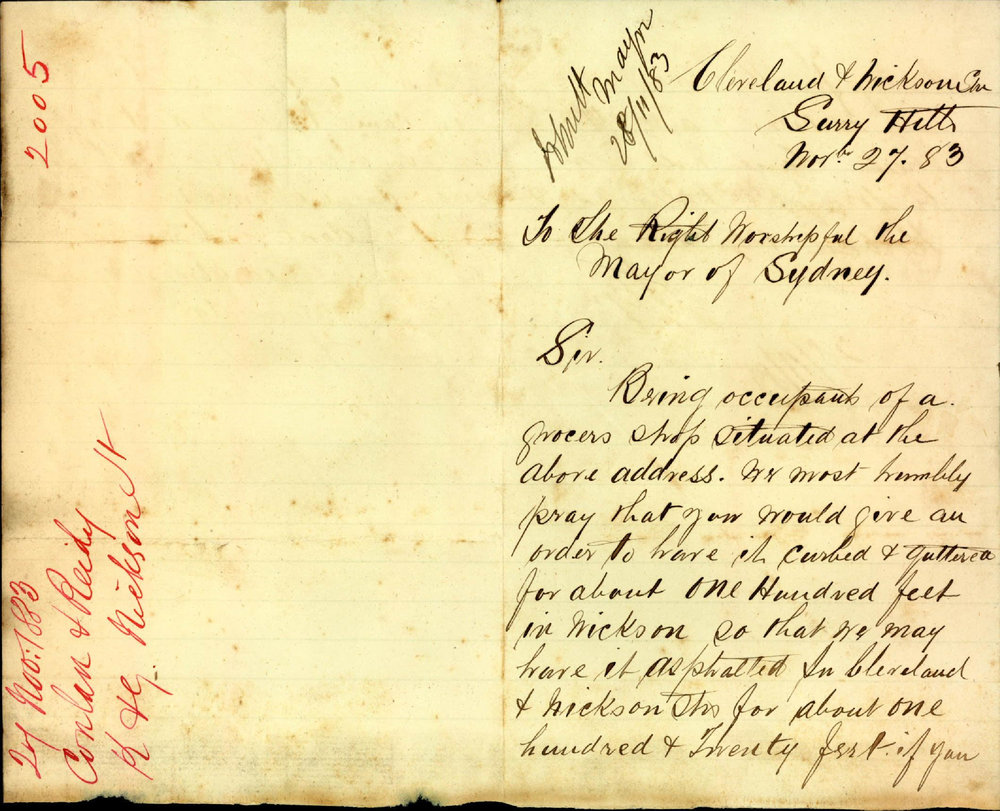 2005
27 Nov. 1883
Conlan & Reidy
K & G Nickson St
Mayor
28/11/83
Cleveland & Nickson Sts
Surry Hills
Novbr 27. 83
To the Right Worshipful the
Mayor of Sydney.
Sir.
Being occupants of a
grocers shop situated at the
above address. We most humbly
pray that you would give an
order to have it curbed & guttered
for about one Hundred feet
in Nickson so that we may
have it asphalted In Cleveland
& Nickson Sts for about one
hundred & Twenty feet. if you